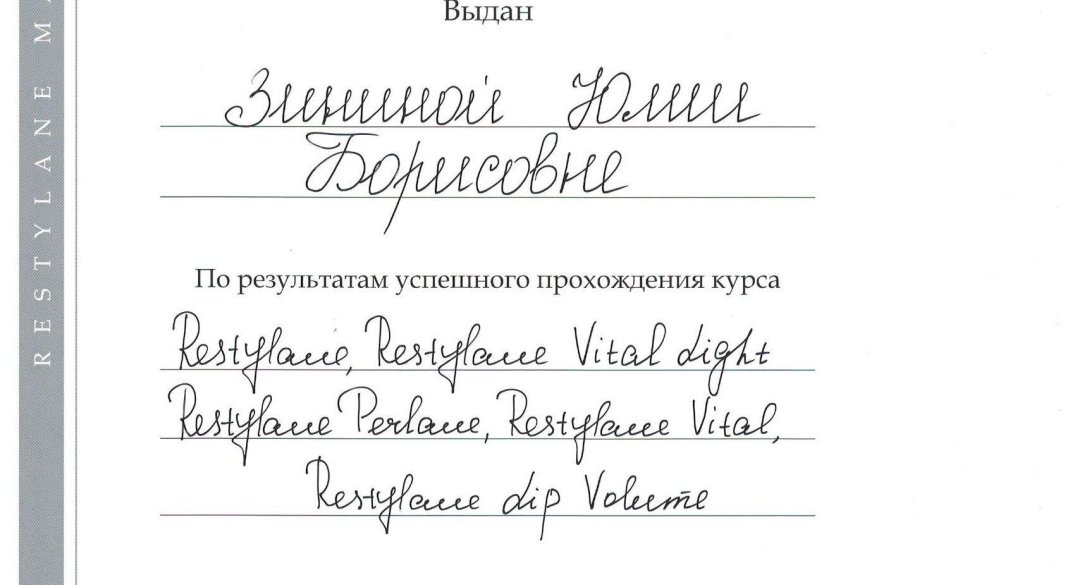 RESTYLANE
Выдан
Зининой Юлии
Борисовне
По результатам успешного прохождения курса
Restylane, Restylane Vital Light
Restylane Perlane, Restylane Vital,
Restylane Lip Volume